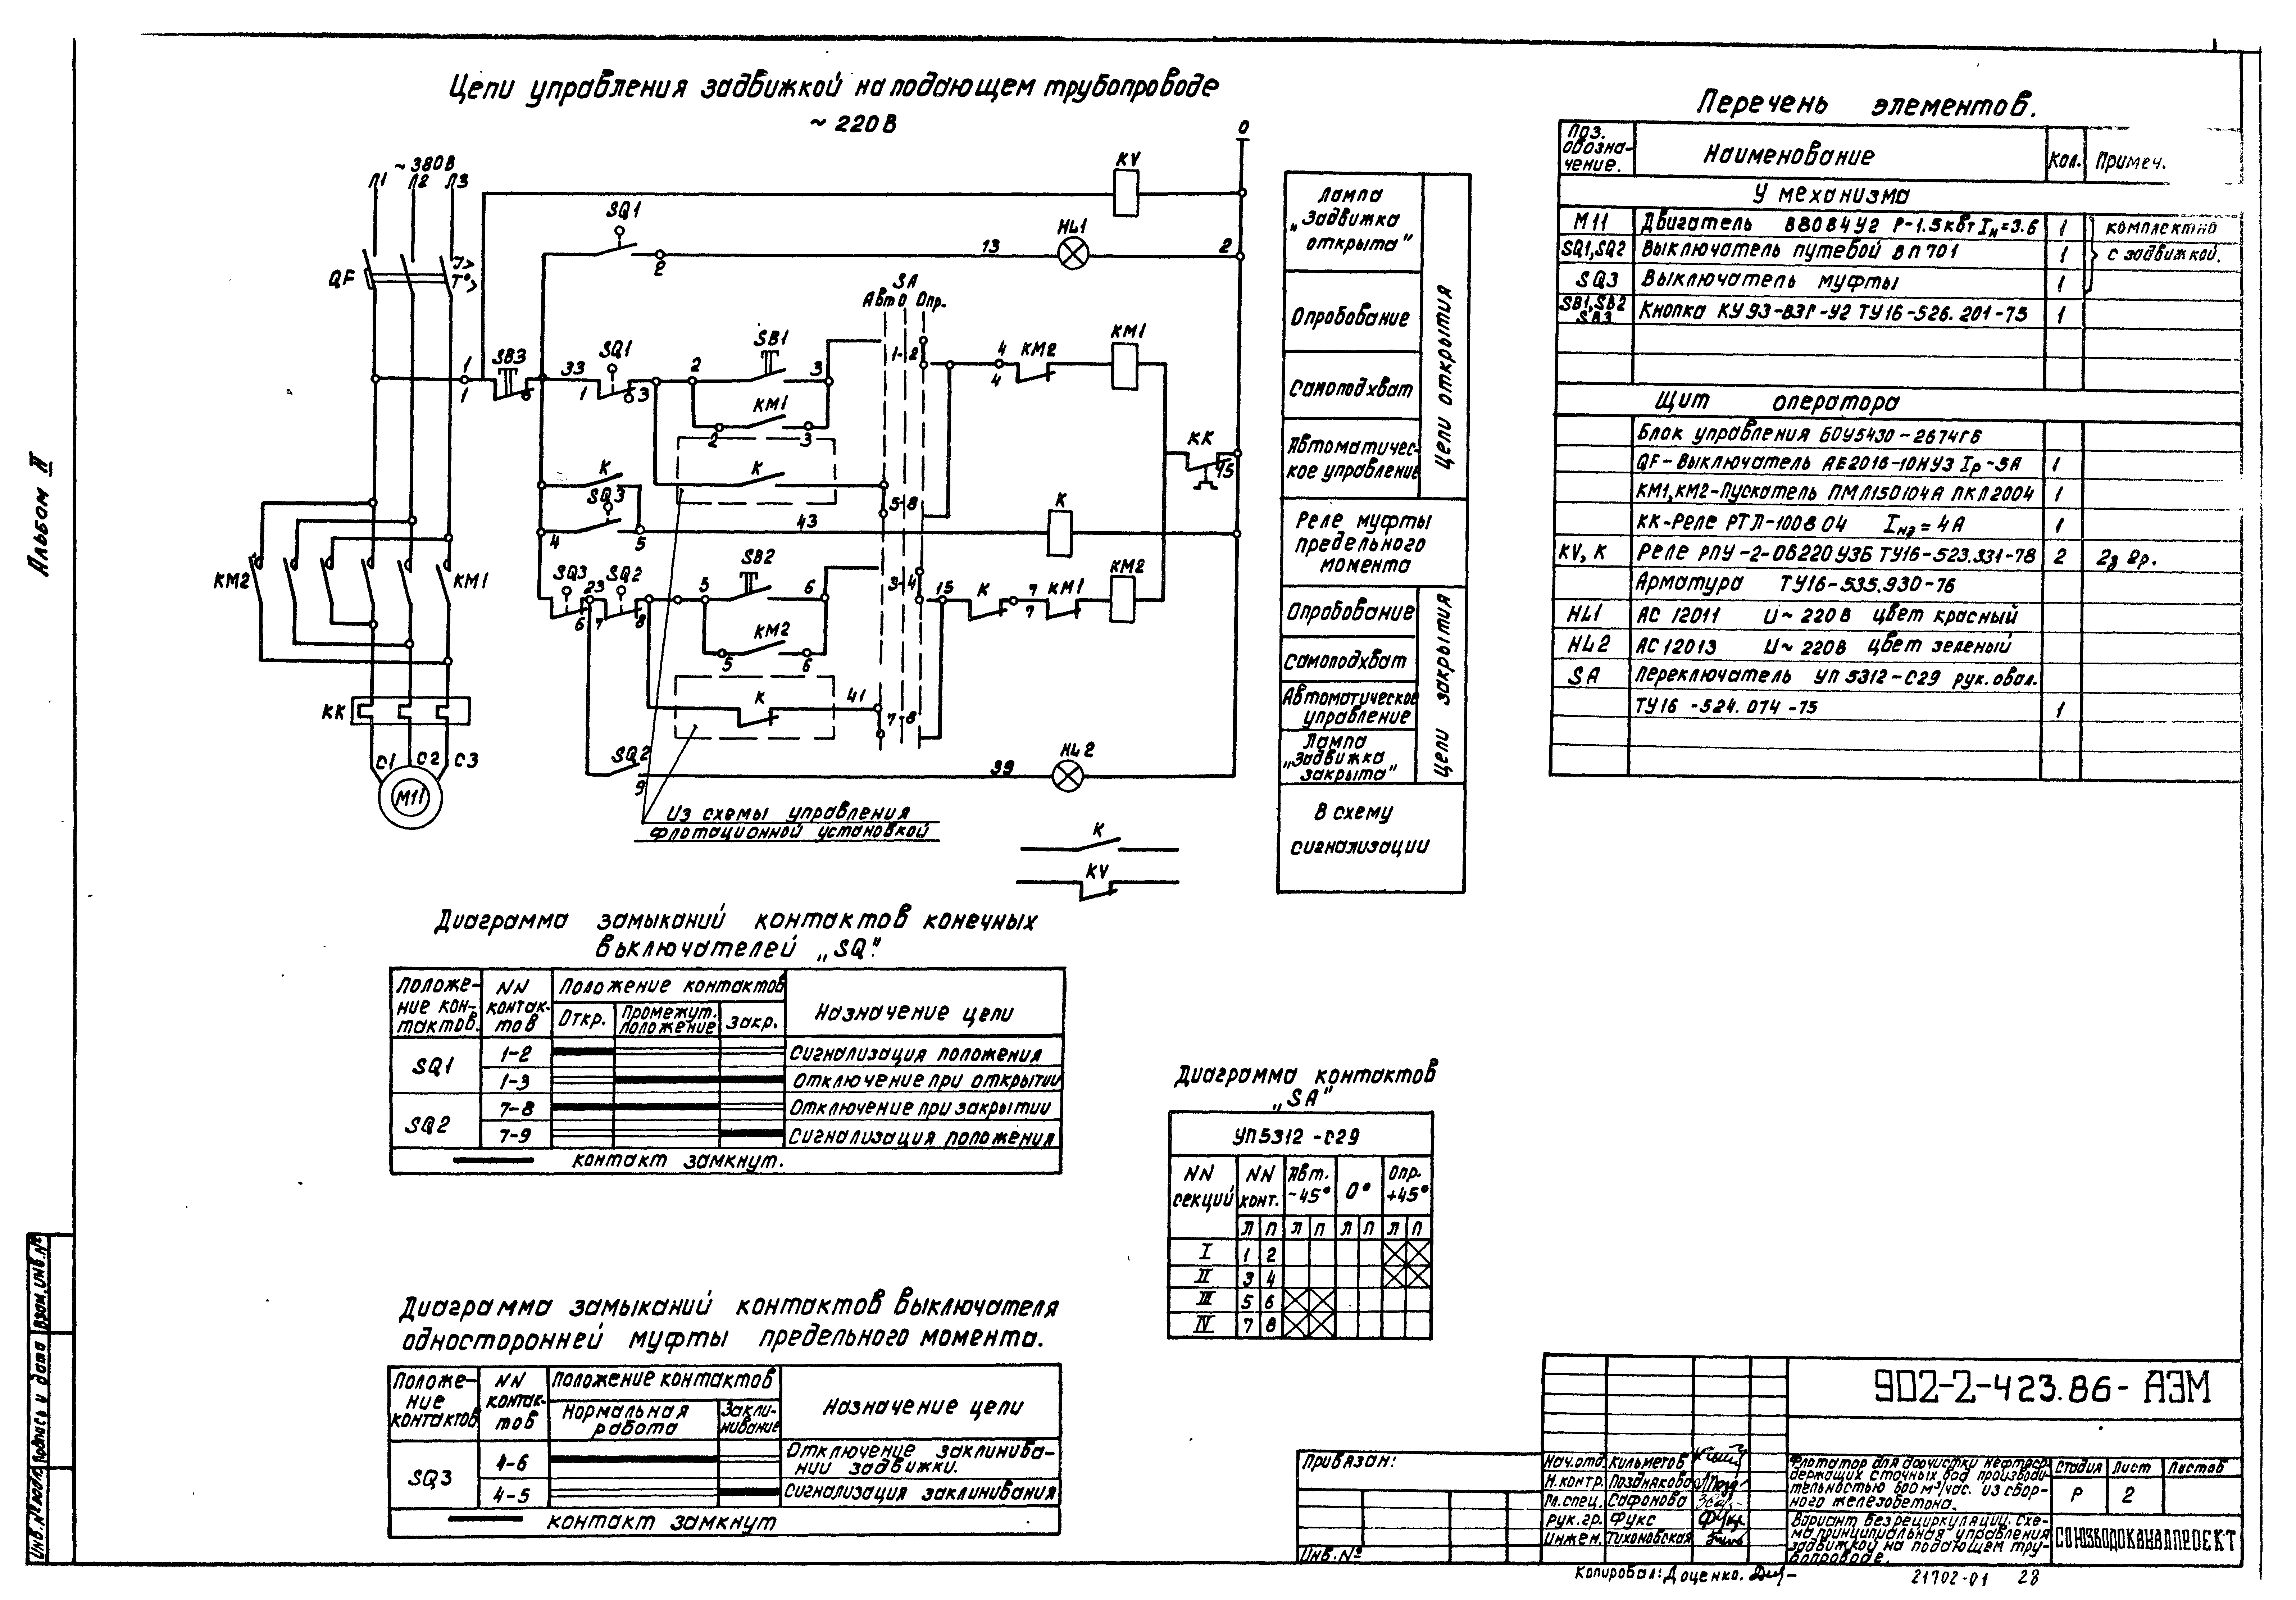 Цепи управления задвижкой на подающем трубопроводе
~ 220 В
~ 380 В
Л1 Л2 Л3
QF
I>
T°>
KV
0
SQ1
2
13
HL1
2
SA
Авт 0 Опр.
1
1
SB3
33
SQ1
1
3
2
SB1
3
1-2
4
4
KM2
KM1
KM1
2
3
K
5-8
KK
15
K
SQ3
4
5
43
K
SQ3
6
23
7
SQ2
8
5
SB2
6
3-4
15
K
7
7
KM1
KM2
KM2
5
6
K
41
7-8
SQ2
9
39
HL2
KM2
KM1
KK
C1 C2 C3
M11
Из схемы управления
флотационной установкой
K
KV
Лампа
„Задвижка
открыта"
Опробование
Самоподхват
Автоматичес-
кое управление
Цепи открытия
Реле муфты
предельного
момента
Опробование
Самоподхват
Автоматическое
управление
Лампа
„Задвижка
закрыта"
Цепи закрытия
В схему
сигнализации
Перечень элементов.
Поз. обозна- чение. Наименование Кол. Примеч.
У механизма
М11 Двигатель В80В4У2 Р-1.5кВт Iн=3.6 1 комплектно
SQ1,SQ2 Выключатель путевой ВП701 1 с задвижкой.
SQ3 Выключатель муфты 1
SB1,SB2 SB3 Кнопка КУ93-ВЗГ-У2 ТУ16-526.201-75 1
Щит оператора
Блок управления БОУ5430-2674ГБ
QF-Выключатель АЕ2016-10НУ3 Iр-5А 1
КМ1,КМ2-Пускатель ПМЛ150104А ПКЛ2004 1
КК-Реле РТЛ-100804 Iнэ=4А 1
KV, K Реле РПУ-2-06220У3Б ТУ16-523.331-78 2 2з 2р.
Арматура ТУ16-535.930-76
HL1 АС 12011 U~220В цвет красный
HL2 АС 12013 U~220В цвет зеленый
SA Переключатель УП 5312-С29 рук.овал.
ТУ16-524.074-75 1
Диаграмма замыканий контактов конечных
выключателей „SQ".
Положе- ние кон- тактов. NN контак- тов Положение контактов Назначение цепи
Откр. Промежут. положение Закр.
SQ1 1-2 Сигнализация положения
1-3 Отключение при открытии
SQ2 7-8 Отключение при закрытии
7-9 Сигнализация положения
контакт замкнут.
Диаграмма контактов
„SA"
УП5312-С29
NN секций NN конт. Авт. -45° 0° Опр. +45°
Л П Л П Л П Л П
I 1 2
II 3 4
III 5 6
IV 7 8
Диаграмма замыканий контактов выключателя
односторонней муфты предельного момента.
Положе- ние контактов NN контак- тов Положение контактов Назначение цепи
Нормальная работа Закли- нивание
SQ3 4-6 Отключение заклинива- нии задвижки.
4-5 Сигнализация заклинивания
контакт замкнут
Альбом II
Инв.№ подл. Подпись и дата Взам.инв.№
Привязан:
Инв.№
902-2-423.86-АЭМ
Нач.отд. Кильметов
Н.контр. Позднякова
М.спец. Сафонова
Рук.гр. Фукс
Инжен. Тихоновская
Флотатор для доочистки нефтесо-
держащих сточных вод производи-
тельностью 600 м³/час. из сбор-
ного железобетона.
Вариант без рециркуляции. Схе-
ма принципиальная управления
задвижкой на подающем тру-
бопроводе.
Стадия Лист Листов
Р 2
СОЮЗВОДОКАНАЛПРОЕКТ
Копировал: Доценко.
21702-01 28